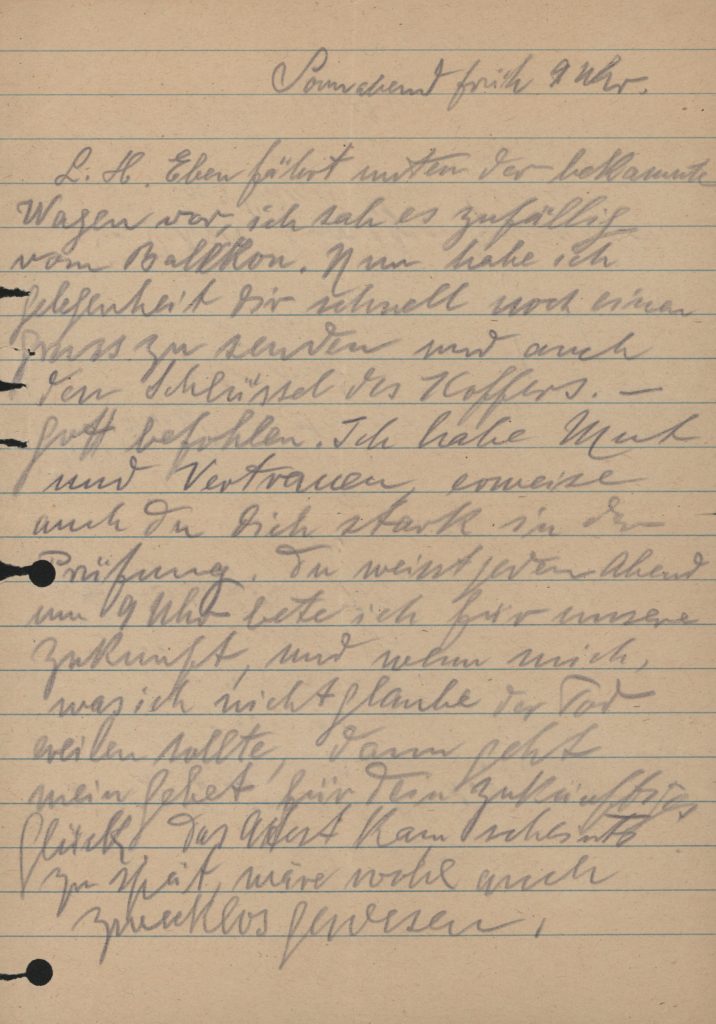 Sonnabend früh 9 Uhr.
L. H. Eben fährt unten der bekannte
Wagen vor, ich sah es zufällig
vom Balkon. Nun habe ich
gelegenheit dir schnell noch einen
gruss zu senden und auch
den Schlüssel des Koffers. —
gott befohlen. Ich habe Mut
und Vertrauen, erweise
auch du dich stark in der
Prüfung. du weisst jeden Abend
um 9 Uhr bete ich für unsere
Zukunft, und wenn mich,
was ich nicht glaube der Tod
ereilen sollte, dann geht
mein gebet für dein zukünftiges
glück das Attest kam scheints
zu spät, wäre wohl auch
zwecklos gewesen,